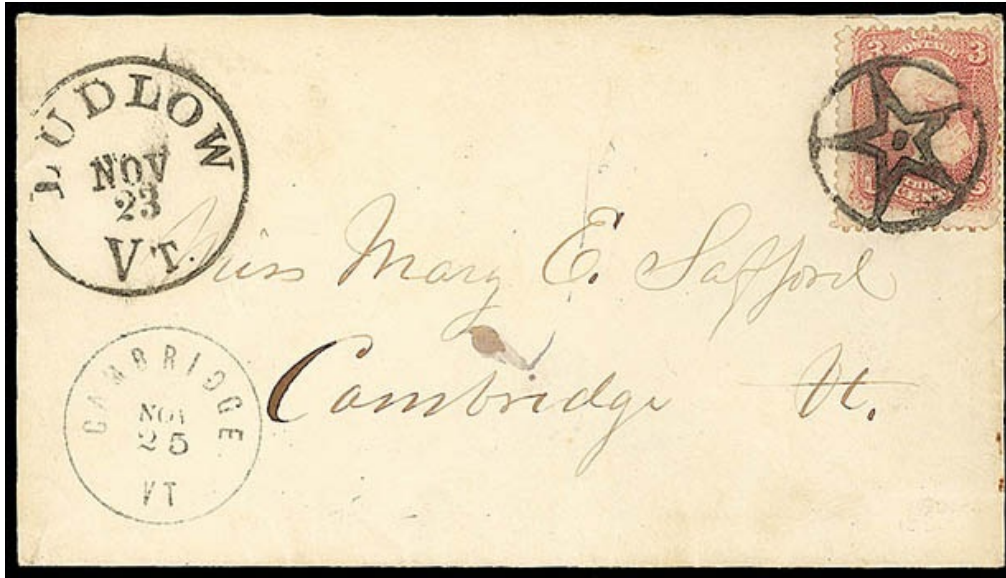 LUDLOW
NOV
23
VT.
3 3
Miss Mary E. Safford
Cambridge Vt.
CAMBRIDGE
NOV
25
VT